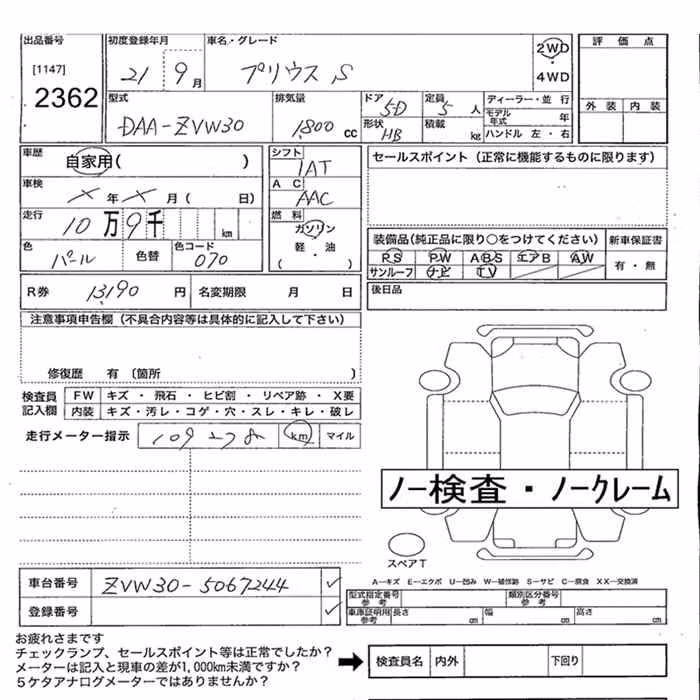 出品番号
[1147]
2362
初度登録年月
21 9月
車名・グレード
プリウス S
2WD
4WD
評価点
外装 内装
型式
DAA-ZVW30
排気量
1,800 cc
ドア 5D
形状 HB
定員 5 人
積載 kg
ディーラー・並行
モデル年式 年
ハンドル 左・右
車歴
自家用( )
車検
× 年 × 月 ( 日)
走行
10 万 9 千 km
色
パール
色替
色コード
070
シフト
1AT
AC
AAC
燃料
ガソリン
軽・油
( )
セールスポイント(正常に機能するものに限ります)
装備品(純正品に限り○をつけてください)
新車保証書
PS PW ABS エアB AW
サンルーフ ナビ TV
有・無
R券 13,190 円
名変期限 月 日
後日品
注意事項申告欄(不具合内容等は具体的に記入して下さい)
修復歴 有 〔箇所 〕
検査員記入欄
FW キズ・飛石・ヒビ割・リペア跡・X要
内装 キズ・汚レ・コゲ・穴・スレ・キレ・破レ
走行メーター指示 109278 km マイル
ノー検査・ノークレーム
スペアT
A―キズ E―エクボ U―凹み W―補修跡 S―サビ C―腐食 XX―交換済
車台番号 ZVW30-5067244
登録番号
型式指定番号 参考
類別区分番号 参考
車庫証明用 参考
長さ cm 幅 cm 高さ cm
お疲れさまです
チェックランプ、セールスポイント等は正常でしたか?
メーターは記入と現車の差が1,000km未満ですか?
5ケタアナログメーターではありませんか?
検査員名 内外 下回り